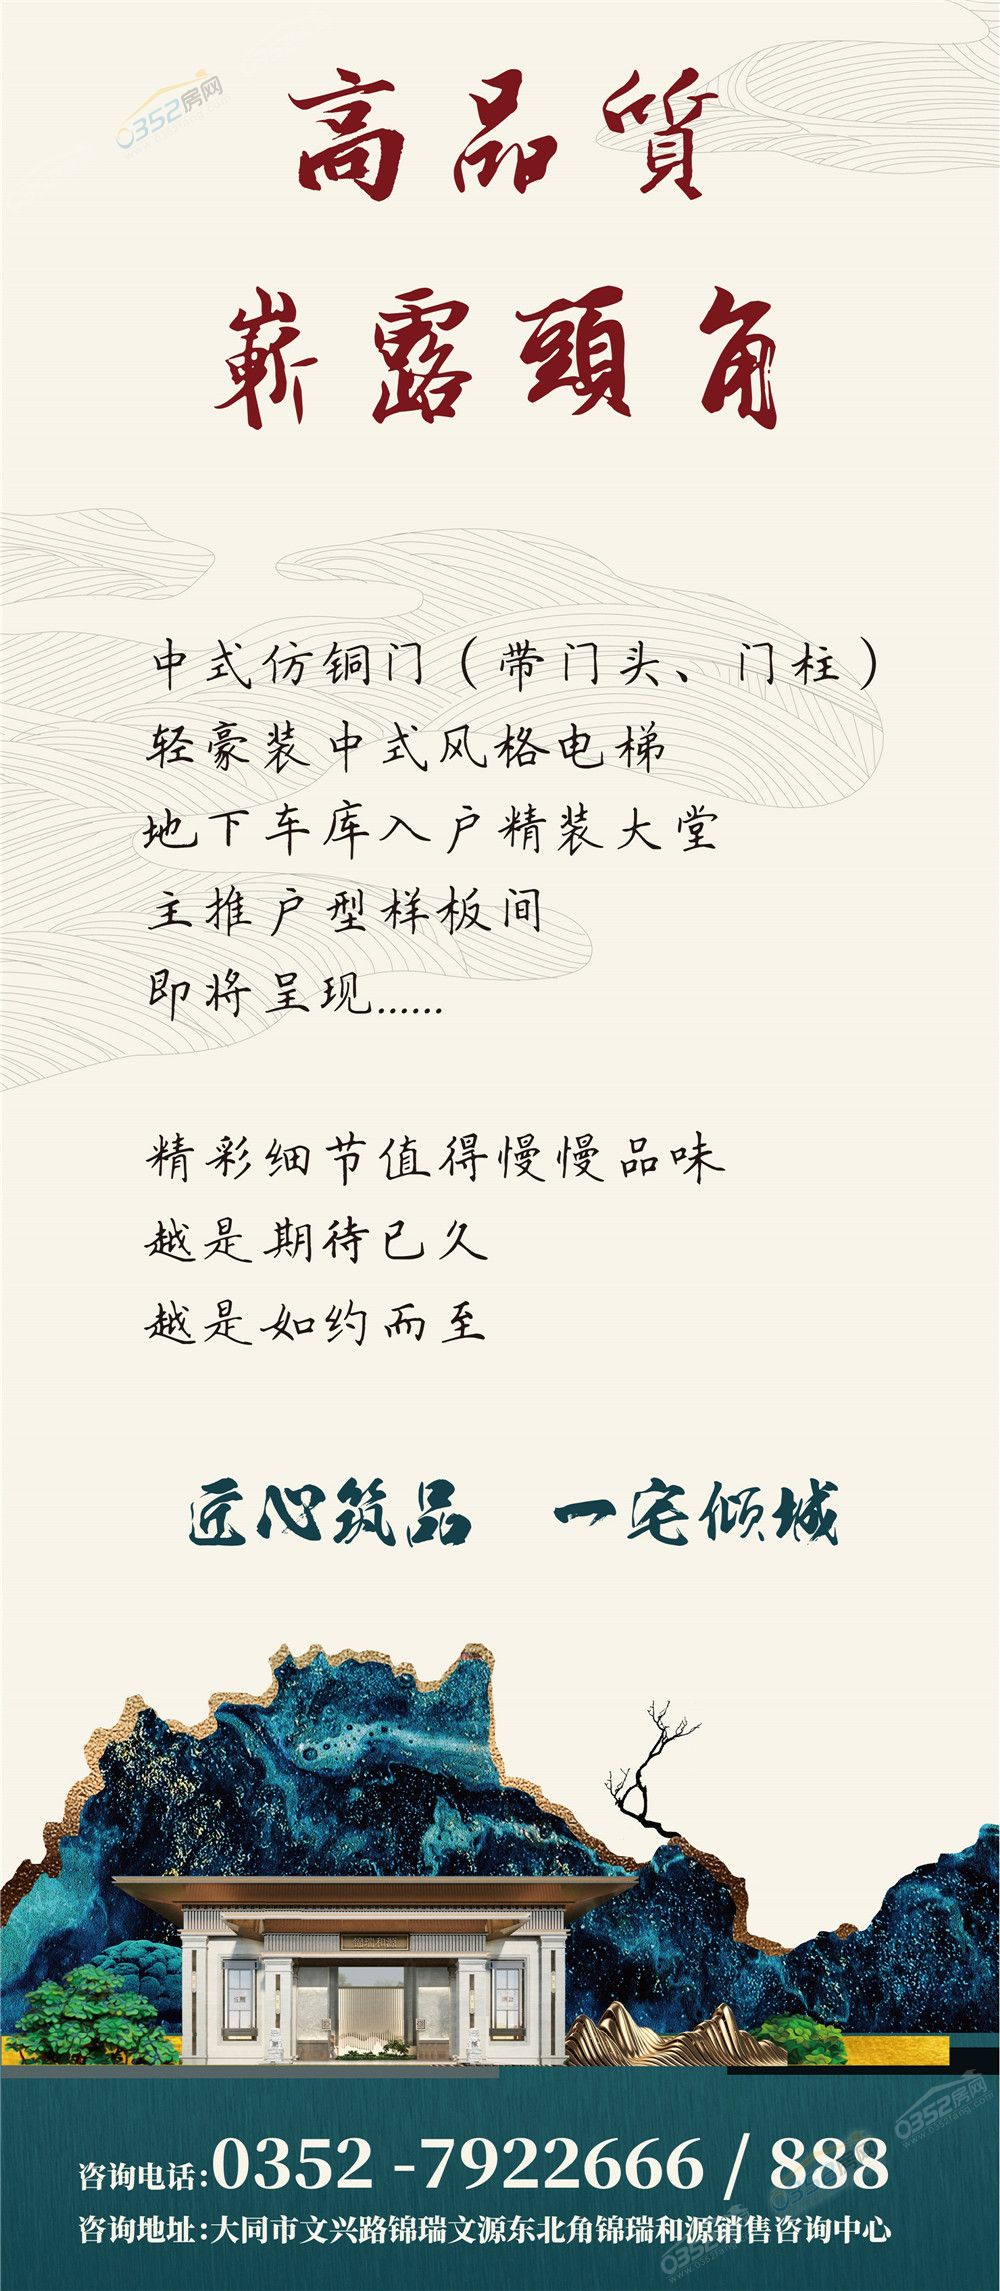 0352房网
www.0352fang.com
高品質
嶄露頭角
中式仿铜门（带门头、门柱）
轻豪装中式风格电梯
地下车库入户精装大堂
主推户型样板间
即将呈现......
精彩细节值得慢慢品味
越是期待已久
越是如约而至
匠心筑品 一宅倾城
錦瑞和源
咨询电话:0352-7922666/888
咨询地址:大同市文兴路锦瑞文源东北角锦瑞和源销售咨询中心
0352房网
www.0352fang.com